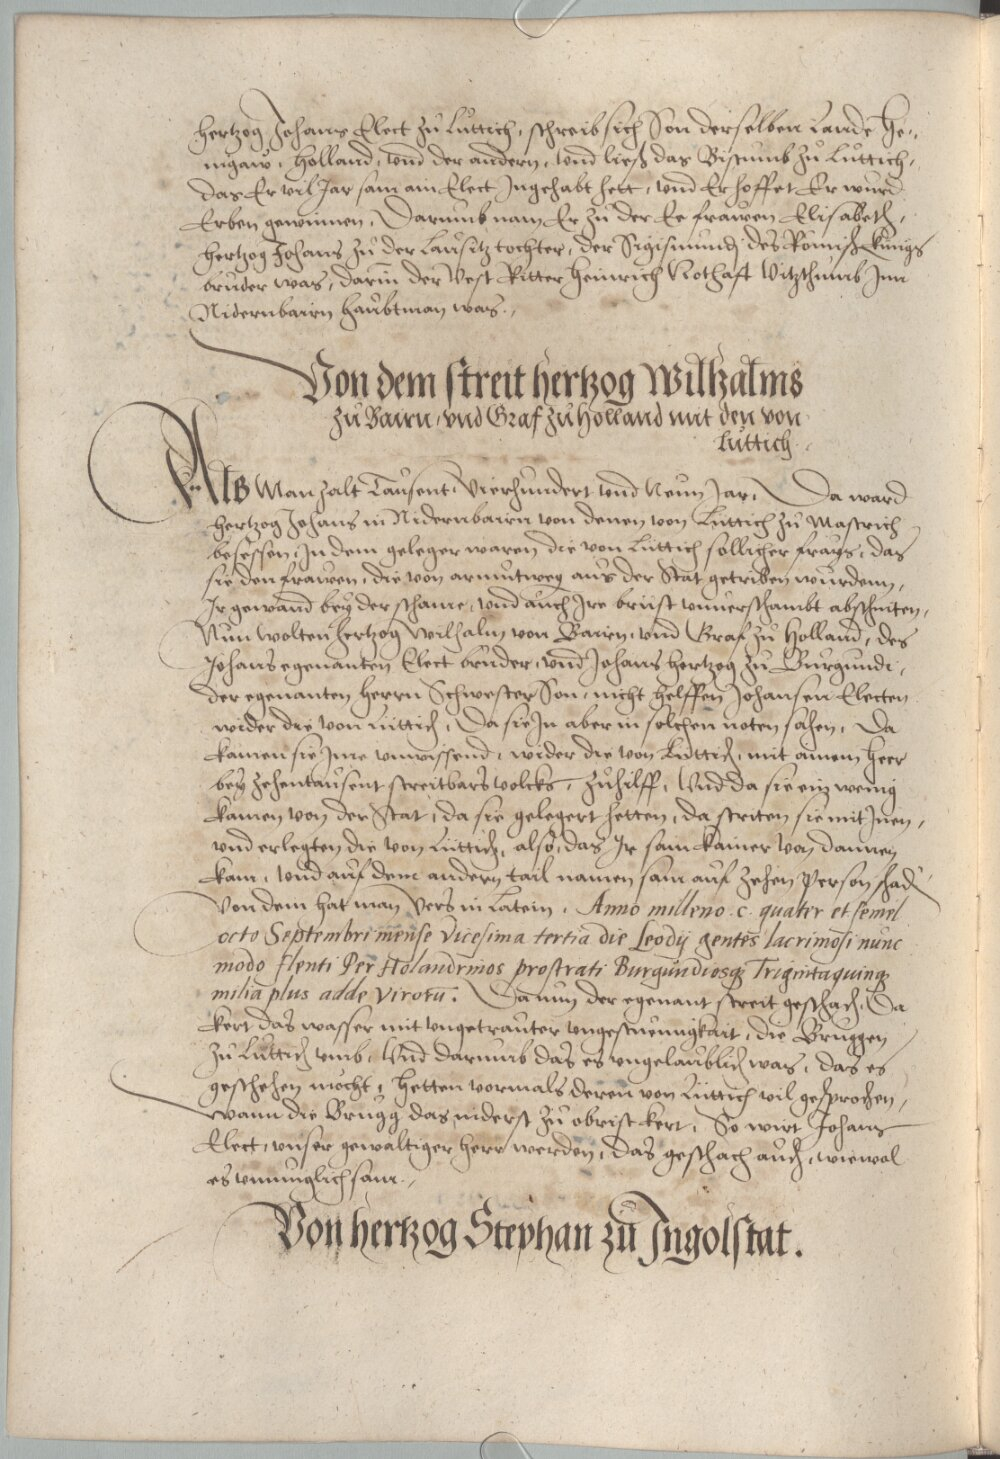 hertzog Johans Elect zu Luttich, schreib sich Son derselben Lande He-,
nigaw, Holland, vnd der andern, vnd ließ das Bistumb zu Luttich,
das Er vil Jar sam ain Elect Ingehabt hett, vnd Er hoffet Er wurd
Erben gewinnen, Darumb nam Er zu der Ee frawen Elisabeth,
hertzog Johans zu der Lausitz tochter, der Sigismundj des Römisch Kunigs
bruder was, darin der Vest Ritter Heinrich Nothaft Vitzthumb Inn
Nidernbairn haubtman was.,
Von dem streit hertzog Wilhalms
zu Bairn, vnd Graf zu Holland mit den von
Luttich.
Als Man zalt Tausent, Vierhundert vnd Neun Jar, Da ward
hertzog Johans in Nidernbairn von denen von Luttich zu Mastrich
besessen, In dem geleger waren die von Luttich sollicher frays, das
sie den frawen, die von armut weg aus der Stat getriben wurdenn,
Ir gewand bey der schame, vnd auch Ire brüst vnuerschambt abschniten,
Nun wolten hertzog Wilhalm von Bairn, vnd Graf zu Holland, des
Johans egenanten Elect bruder, vnd Johans hertzog zu Burgundi,
der egenanten herrn Schwester Son, nicht helffen Johansen Electen
wider die von Luttich, Da sie In aber in solchen noten sahen, Da
kamen sie Ime vnwissend, wider die von Luttich, mit ainem Heer
bey zehentausent streitbars volcks, zuhilff, Vnd da sie ein wenig
kamen von der Stat, da sie gelegert hetten, da striten sie mit Inen,
vnd erlegten die von Luttich, also, das Ir sam kainer von dannen
kam, vnd auf dem andern tail namen sam auf zehen Person schad
Von dem hat man Vers in Latein, Anno milleno .c. quater et semel
octo Septembri mense Vicesima tertia die Leodij gentes lacrimosi nunc
modo flenti Per Holandrinos prostrati Burgundiosq Trigintaquinq
milia plus adde viroru. Da nun der egenant streit geschach, Da
kert das wasser mit vngetrauter vngestuemigkait, die Bruggen
zu Luttich vmb, Vnd darumb das es vngelaublich was, das es
geschehen mocht, Hetten vormals deren von Luttich vil gesprochen,
Wann die Brugg das niderst zu obrist kert, So wirt Johans
Elect, vnser gewaltiger herr werden, das geschach auch, wiewol
es vnmuglich sam.,
Von hertzog Stephan zu Ingolstat.